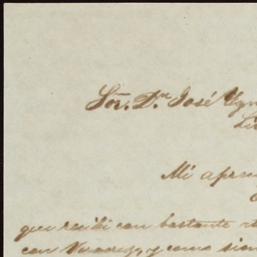 Sor. Dn. José Ygn
Mi apre
que recibi con bastante
con Veracruz, y como sien